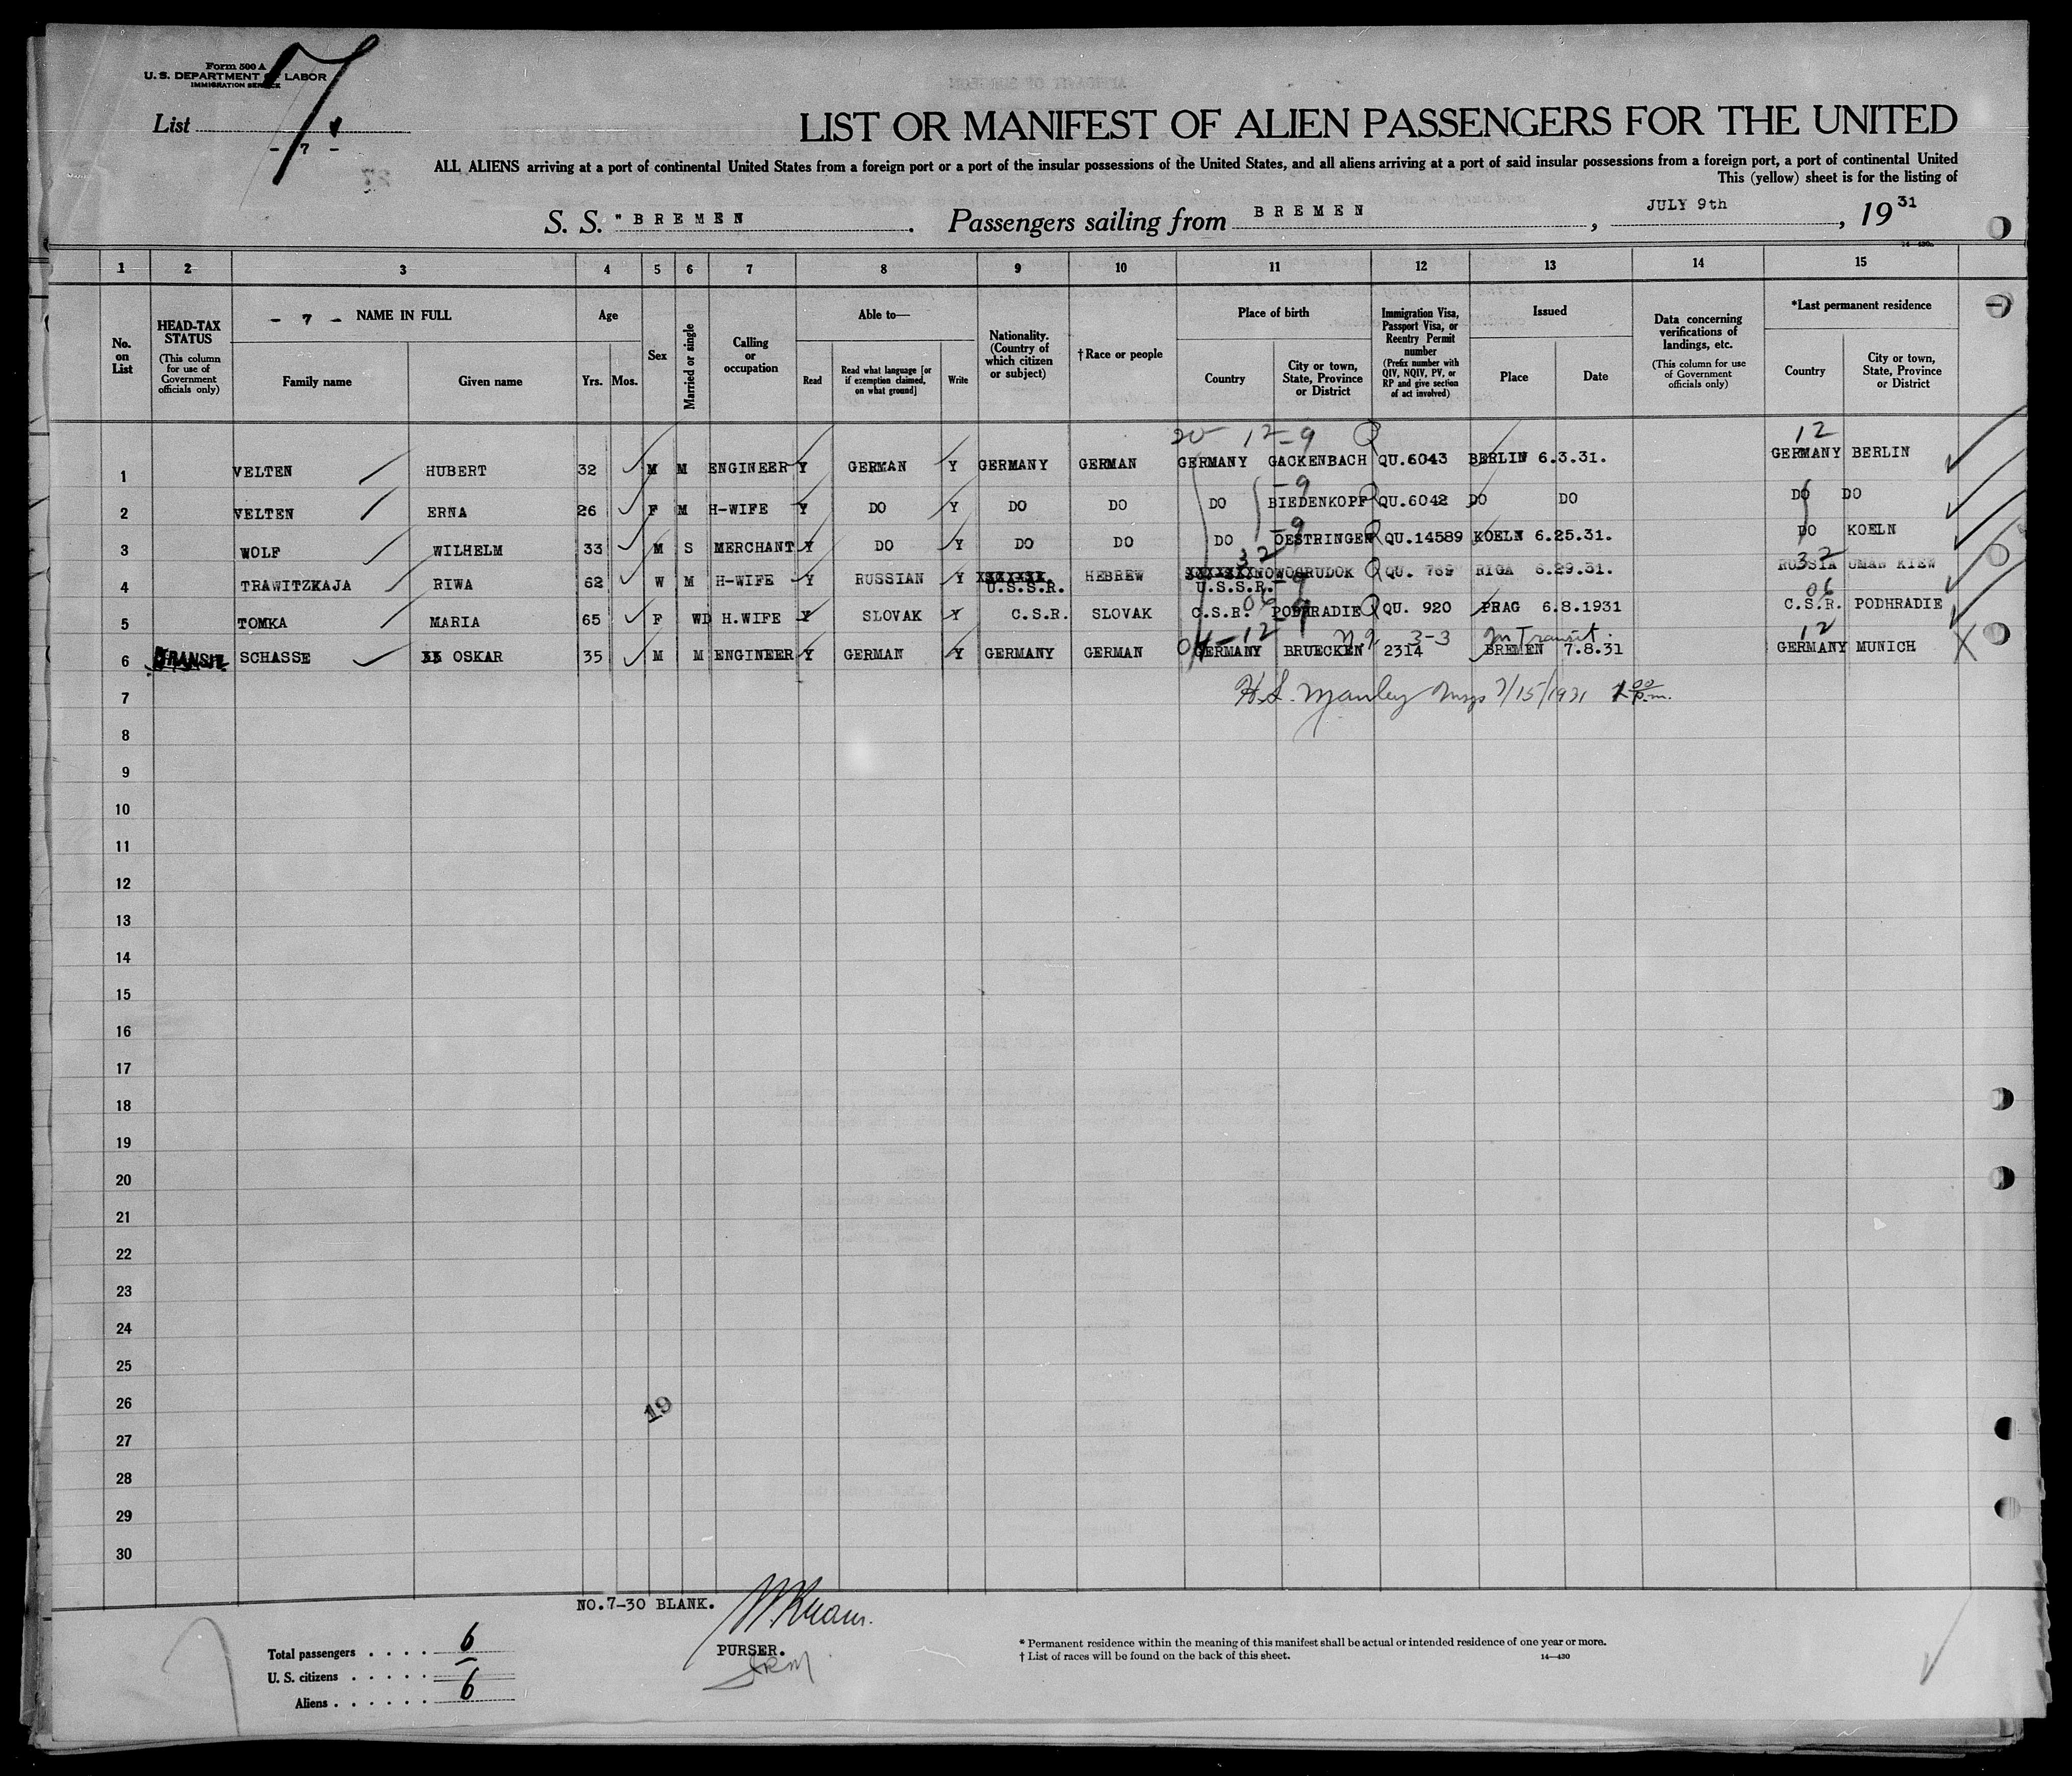 Form 500 A
U. S. DEPARTMENT OF LABOR
IMMIGRATION SERVICE
7
List
- 7 -
LIST OR MANIFEST OF ALIEN PASSENGERS FOR THE UNITED
ALL ALIENS arriving at a port of continental United States from a foreign port or a port of the insular possessions of the United States, and all aliens arriving at a port of said insular possessions from a foreign port, a port of continental United
This (yellow) sheet is for the listing of
S. S. "BREMEN. Passengers sailing from BREMEN, JULY 9th, 19 31
1 2 3 4 5 6 7 8 9 10 11 12 13 14 15
No. on List
HEAD-TAX STATUS (This column for use of Government officials only)
- 7 - NAME IN FULL
Family name Given name
Age
Yrs. Mos.
Sex
Married or single
Calling or occupation
Able to—
Read Read what language [or if exemption claimed, on what ground] Write
Nationality. (Country of which citizen or subject)
†Race or people
Place of birth
Country City or town, State, Province or District
Immigration Visa, Passport Visa, or Reentry Permit number (Prefix number with QIV, NQIV, PV, or RP and give section of act involved)
Issued
Place Date
Data concerning verifications of landings, etc. (This column for use of Government officials only)
*Last permanent residence
Country City or town, State, Province or District
20 12-9 Q 12
1 VELTEN HUBERT 32 M M ENGINEER Y GERMAN Y GERMANY GERMAN GERMANY GACKENBACH QU.6043 BERLIN 6.3.31. GERMANY BERLIN
-9
2 VELTEN ERNA 26 F M H-WIFE Y DO Y DO DO DO BIEDENKOPF QU.6042 DO DO DO DO
-9
3 WOLF WILHELM 33 M S MERCHANT Y DO Y DO DO DO OESTRINGEN QU.14589 KOELN 6.25.31. DO KOELN
32 32
4 TRAWITZKAJA RIWA 62 W M H-WIFE Y RUSSIAN Y XXXXXXX. U.S.S.R. HEBREW XXXXXXX U.S.S.R. NOWOGRUDOK QU. 769 RIGA 6.29.31. RUSSIA UMAN KIEW
06 9 06
5 TOMKA MARIA 65 F WD H.WIFE Y SLOVAK Y C.S.R. SLOVAK C.S.R. PODHRADIE QU. 920 PRAG 6.8.1931 C.S.R. PODHRADIE
04-12 3-3 In Transit. 12
6 TRANSIT. SCHASSE OSKAR 35 M M ENGINEER Y GERMAN Y GERMANY GERMAN GERMANY BRUECKEN 2314 BREMEN 7.8.31 GERMANY MUNICH X
H.S. Manley Insp 7/15/1931
7
8
9
10
11
12
13
14
15
16
17
18
19
20
21
22
23
24
25
26
19
27
28
29
30
NO.7-30 BLANK.
PURSER.
Total passengers . . . . 6
U. S. citizens . . . . . –
Aliens . . . . . . 6
* Permanent residence within the meaning of this manifest shall be actual or intended residence of one year or more.
† List of races will be found on the back of this sheet.
14—430